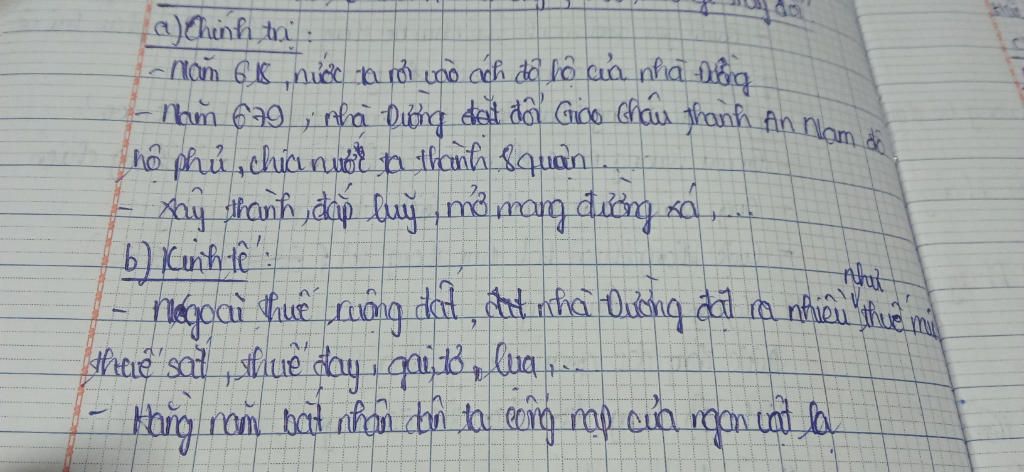 a) Chính trị :
- Năm 618, nước ta rơi vào ách đô hộ của nhà Đường
- Năm 679, nhà Đường đổi Giao Châu thành An Nam đô
hộ phủ, chia nước ta thành 8 quận.
- xây thành, đắp luỹ, mở mang đường xá,...
b) Kinh tế :
như
- Ngoài thuế ruộng đất, nhà Đường đặt ra nhiều thuế
thuế sắt, thuế đay, gai, tơ, lụa,...
- Hằng năm bắt nhân dân ta cống nạp của ngon vật lạ